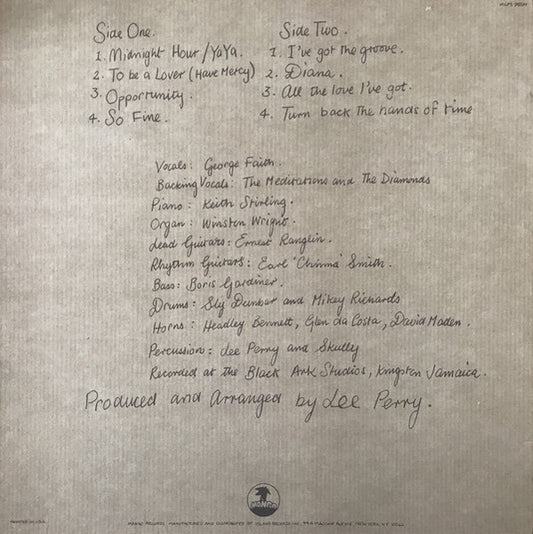 Side One.
1. Midnight Hour / YaYa.
2. To be a Lover (Have Mercy)
3. Opportunity.
4. So Fine.
Side Two.
1. I've got the groove.
2. Diana.
3. All the love I've got.
4. Turn back the hands of time
Vocals: George Faith.
Backing Vocals: The Meditations and The Diamonds
Piano: Keith Stirling.
Organ: Winston Wright.
Lead Guitars: Ernest Ranglin.
Rhythm Guitars: Earl 'Chinna' Smith.
Bass: Boris Gardiner.
Drums: Sly Dunbar and Mikey Richards
Horns: Headley Bennett, Glen da Costa, David Maden.
Percussion: Lee Perry and Skully
Recorded at the Black Ark Studios, Kingston Jamaica.
Produced and Arranged by Lee Perry.
MANGO
PRINTED IN U.S.A.
MANGO RECORDS, MANUFACTURED AND DISTRIBUTED BY ISLAND RECORDS INC., NEW YORK, N.Y. 10022